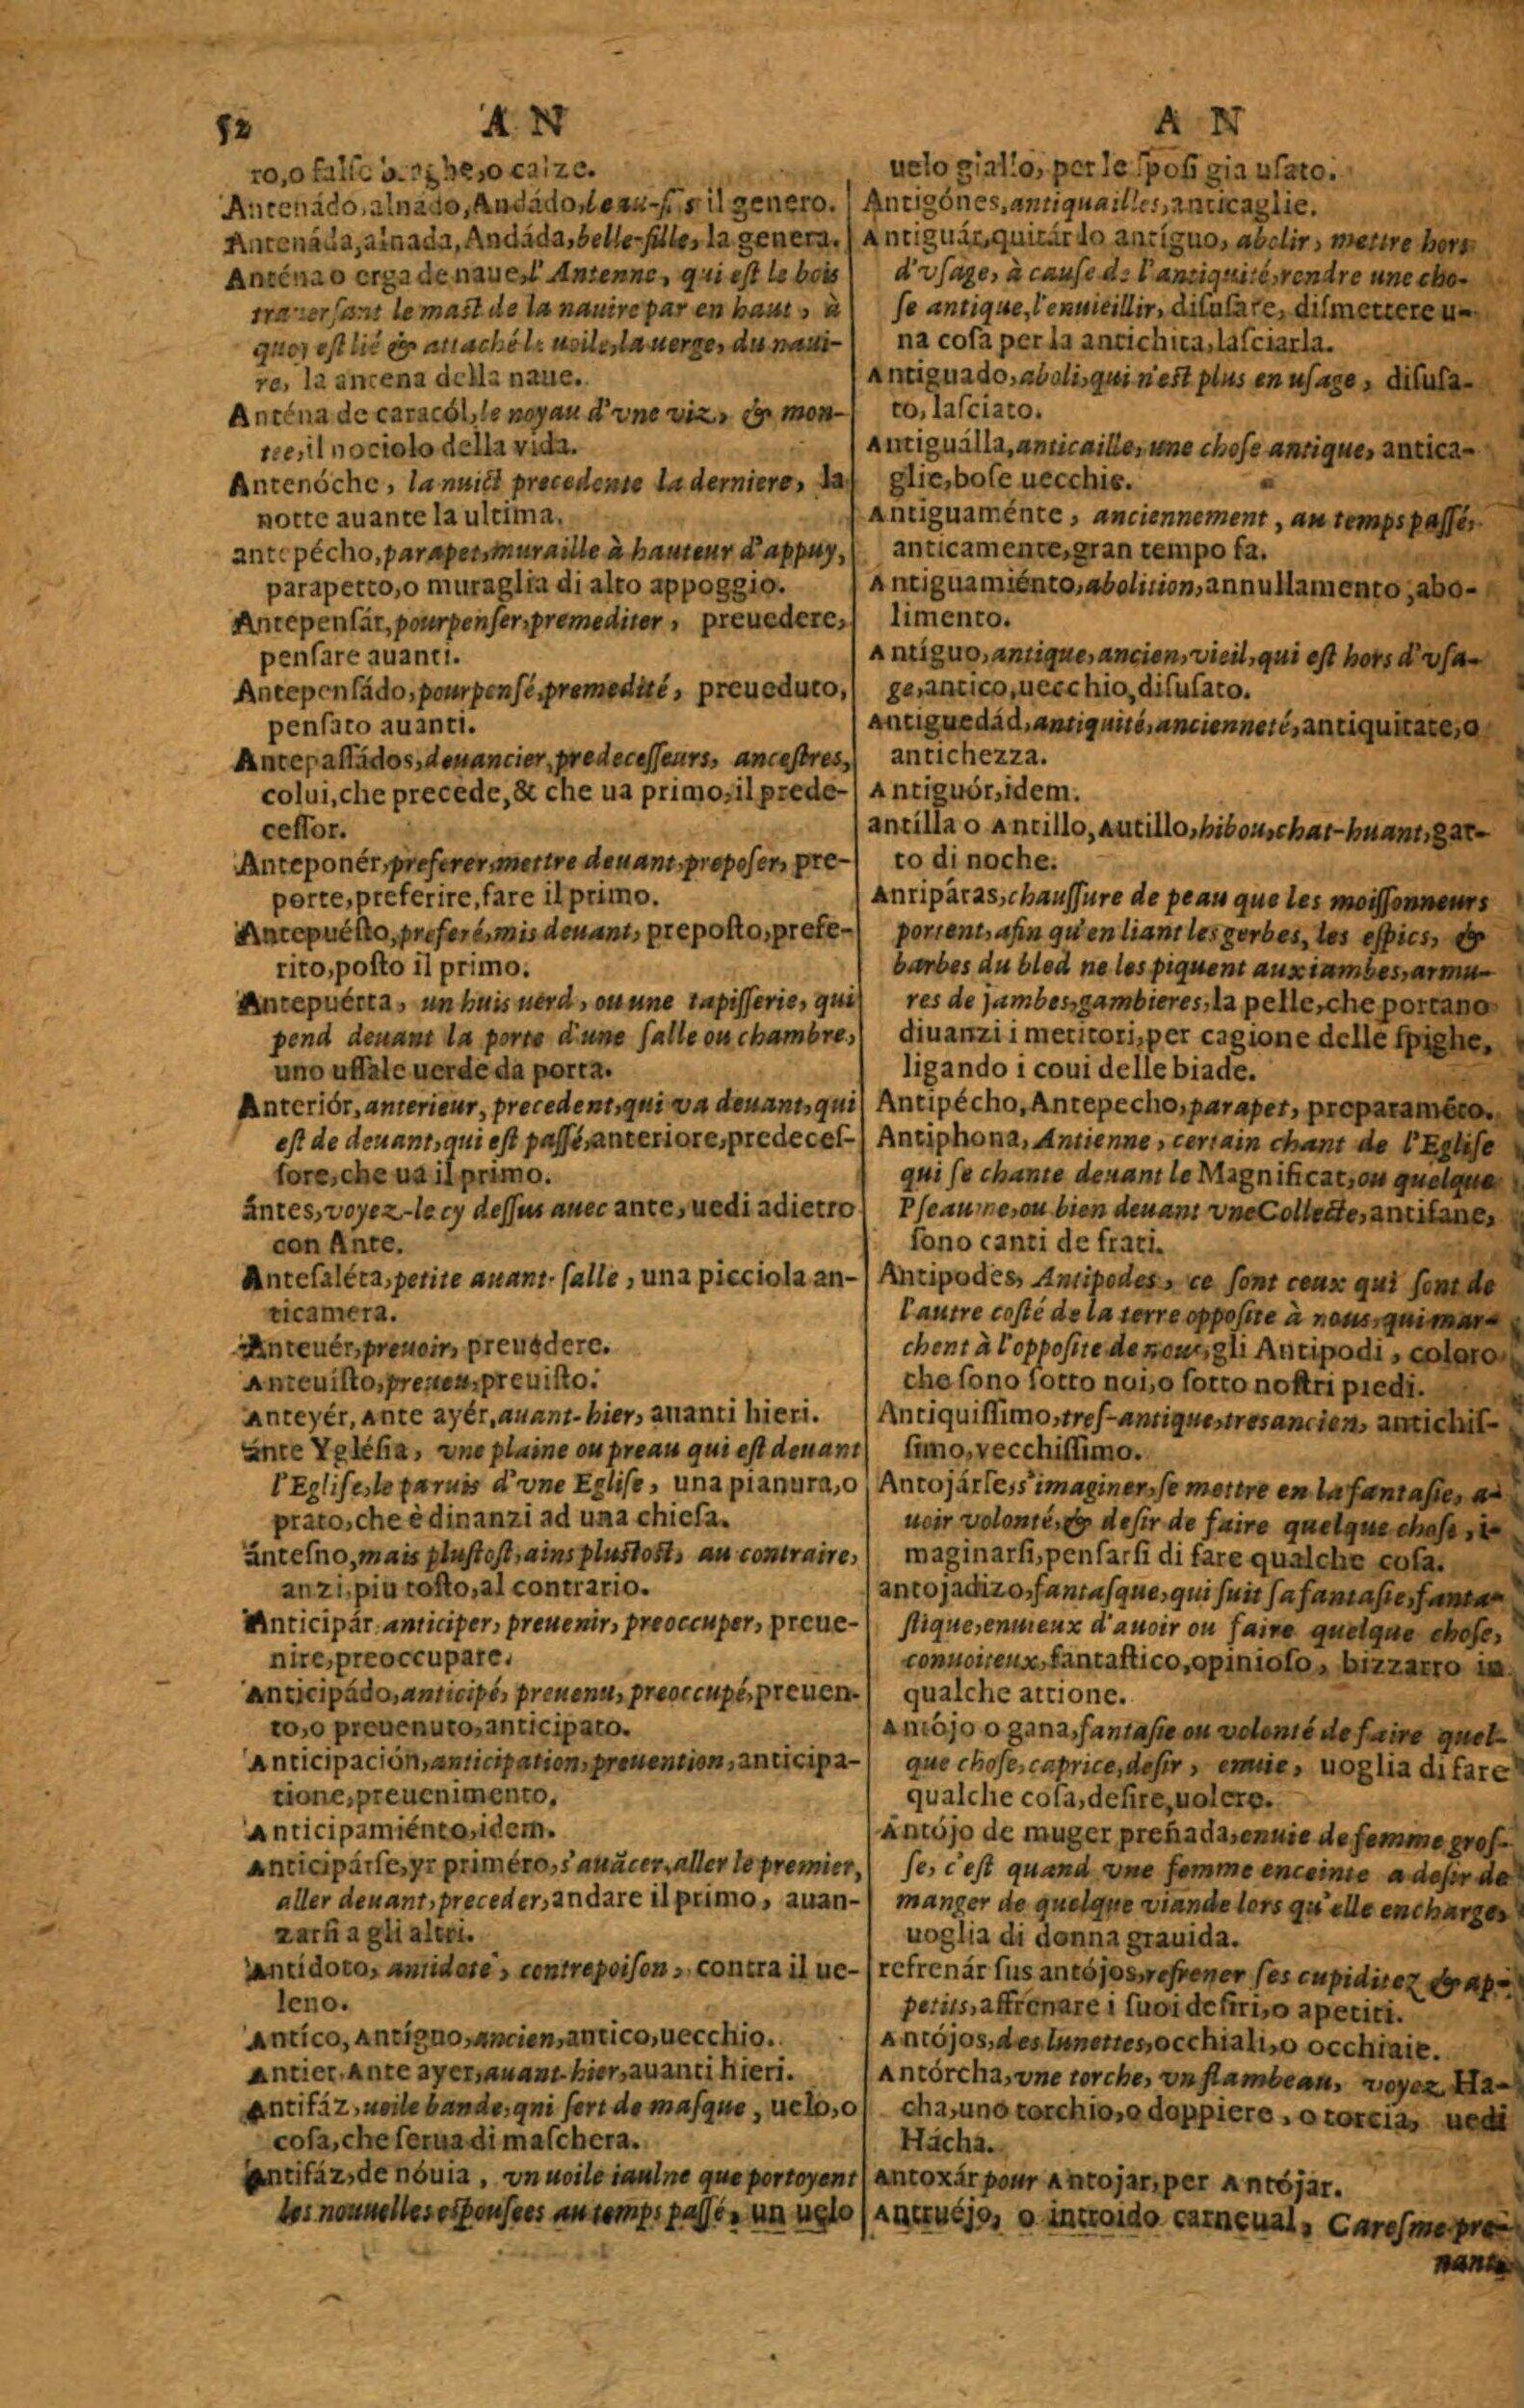 52 A N
ro, o false b. aghe, o calze.
Antenádo, alnádo, Andádo, beau-fis il genero.
Antenáda, alnada, Andáda, belle-fille, la genera.
Anténa o erga de naue, l'Antenne, qui est le bois
trauersant le mast de la nauire par en haut, à
quoy est lié & attaché le uoile, la uerge, du naui-
re, la antena della naue.
Anténa de caracól, le noyau d'vne viz, & mon-
tee, il nociolo della vida.
Antenóche, la nuict precedente la derniere, la
notte auante la ultima.
antepécho, parapet, muraille à hauteur d'appuy,
parapetto, o muraglia di alto appoggio.
Antepensár, pourpenser, premediter, preuedere,
pensare auanti.
Antepensádo, pourpensé, premedité, preueduto,
pensato auanti.
Antepassádos, deuancier, predecesseurs, ancestres,
colui, che precede, & che ua primo, il prede-
cessor.
Anteponér, preferer, mettre deuant, preposer, pre-
porte, preferire, fare il primo.
Antepuésto, preferé, mis deuant, preposto, prefe-
rito, posto il primo.
Antepuérta, un huis uerd, ou une tapisserie, qui
pend deuant la porte d'une salle ou chambre,
uno ussale uerde da porta.
Anteriór, anterieur, precedent, qui va deuant, qui
est de deuant, qui est passé, anteriore, predeces-
sore, che ua il primo.
ántes, voyez-le cy dessus auec ante, uedi adietro
con Ante.
Antesaléta, petite auant-salle, una picciola an-
ticamera.
Anteuér, preuoir, preuedere.
Anteuisto, preueu, preuisto.
Anteyér, Ante ayér, auant-hier, auanti hieri.
ánte Yglésia, vne plaine ou preau qui est deuant
l'Eglise, le paruis d'vne Eglise, una pianura, o
prato, che è dinanzi ad una chiesa.
ántesno, mais plustost, ains plustost, au contraire,
anzi, piu tosto, al contrario.
Anticipár, anticiper, preuenir, preoccuper, preue-
nire, preoccupare.
Anticipádo, anticipé, preuenu, preoccupé, preuen-
to, o preuenuto, anticipato.
Anticipación, anticipation, preuention, anticipa-
tione, preuenimento.
Anticipamiénto, idem.
Anticipárse, yr priméro, s'auãcer, aller le premier,
aller deuant, preceder, andare il primo, auan-
zarsi a gli altri.
Antídoto, antidote, contrepoison, contra il ue-
leno.
Antíco, Antígno, ancien, antico, uecchio.
Antier, Ante ayer, auant-hier, auanti hieri.
Antifáz, uoile bande, qni sert de masque, uelo, o
cosa, che serua di maschera.
Antifáz, de nóuia, vn uoile iaulne que portoyent
les nouuelles espousees au temps passé, un uelo
A N
uelo giallo, per le sposi gia usato.
Antigónes, antiquailles, anticaglie.
Antiguár, quitár lo antíguo, abolir, mettre hors
d'vsage, à cause de l'antiquité, rendre une cho-
se antique, l'enuieillir, disusare, dismettere u-
na cosa per la antichita, lasciarla.
Antiguado, aboli, qui n'est plus en usage, disusa-
to, lasciato.
Antiguálla, anticaille, une chose antique, antica-
glie, bose uecchie.
Antiguaménte, anciennement, au temps passé,
anticamente, gran tempo fa.
Antiguamiénto, abolition, annullamento, abo-
limento.
Antíguo, antique, ancien, vieil, qui est hors d'vsa-
ge, antico, uecchio, disusato.
Antiguedád, antiquité, ancienneté, antiquitate, o
antichezza.
Antiguór, idem.
antílla o Antillo, Autillo, hibou, chat-huant, gat-
to di noche.
Antipáras, chaussure de peau que les moissonneurs
portent, afin qu'en liant les gerbes, les espics, &
barbes du bled ne les piquent aux iambes, armu-
res de jambes, gambieres, la pelle, che portano
diuanzi i metitori, per cagione delle spighe,
ligando i coui delle biade.
Antipécho, Antepecho, parapet, preparaméto.
Antiphona, Antienne, certain chant de l'Eglise
qui se chante deuant le Magnificat, ou quelque
Pseaume, ou bien deuant vne Collecte, antifane,
sono canti de frati.
Antipodes, Antipodes, ce sont ceux qui sont de
l'autre costé de la terre opposite à nous, qui mar-
chent à l'opposite de nous, gli Antipodi, coloro
che sono sotto noi, o sotto nostri piedi.
Antiquissimo, tres-antique, tresancien, antichis-
simo, vecchissimo.
Antojárse, s'imaginer, se mettre en la fantasie, a-
uoir volonté, & desir de faire quelque chose, i-
maginarsi, pensarsi di fare qualche cosa.
antojadizo, fantasque, qui suit sa fantasie, fanta-
stique, enuieux d'auoir ou faire quelque chose,
conuoiteux, fantastico, opinioso, bizzarro in
qualche attione.
Antójo o gana, fantasie ou volonté de faire quel-
que chose, caprice, desir, enuie, uoglia di fare
qualche cosa, desire, uolere.
Antójo de muger preñada, enuie de femme gros-
se, c'est quand vne femme enceinte a desir de
manger de quelque viande lors qu'elle encharge,
uoglia di donna grauida.
refrenár sus antójos, refrener ses cupiditez & ap-
petits, affrenare i suoi desiri, o apetiti.
Antójos, des lunettes, occhiali, o occhiaie.
Antórcha, vne torche, vn flambeau, voyez Ha-
cha, uno torchio, o doppiere, o torcia, uedi
Hácha.
antoxár pour Antojar, per Antójar.
Antruéjo, o introido carneual, Caresme pre-
nant